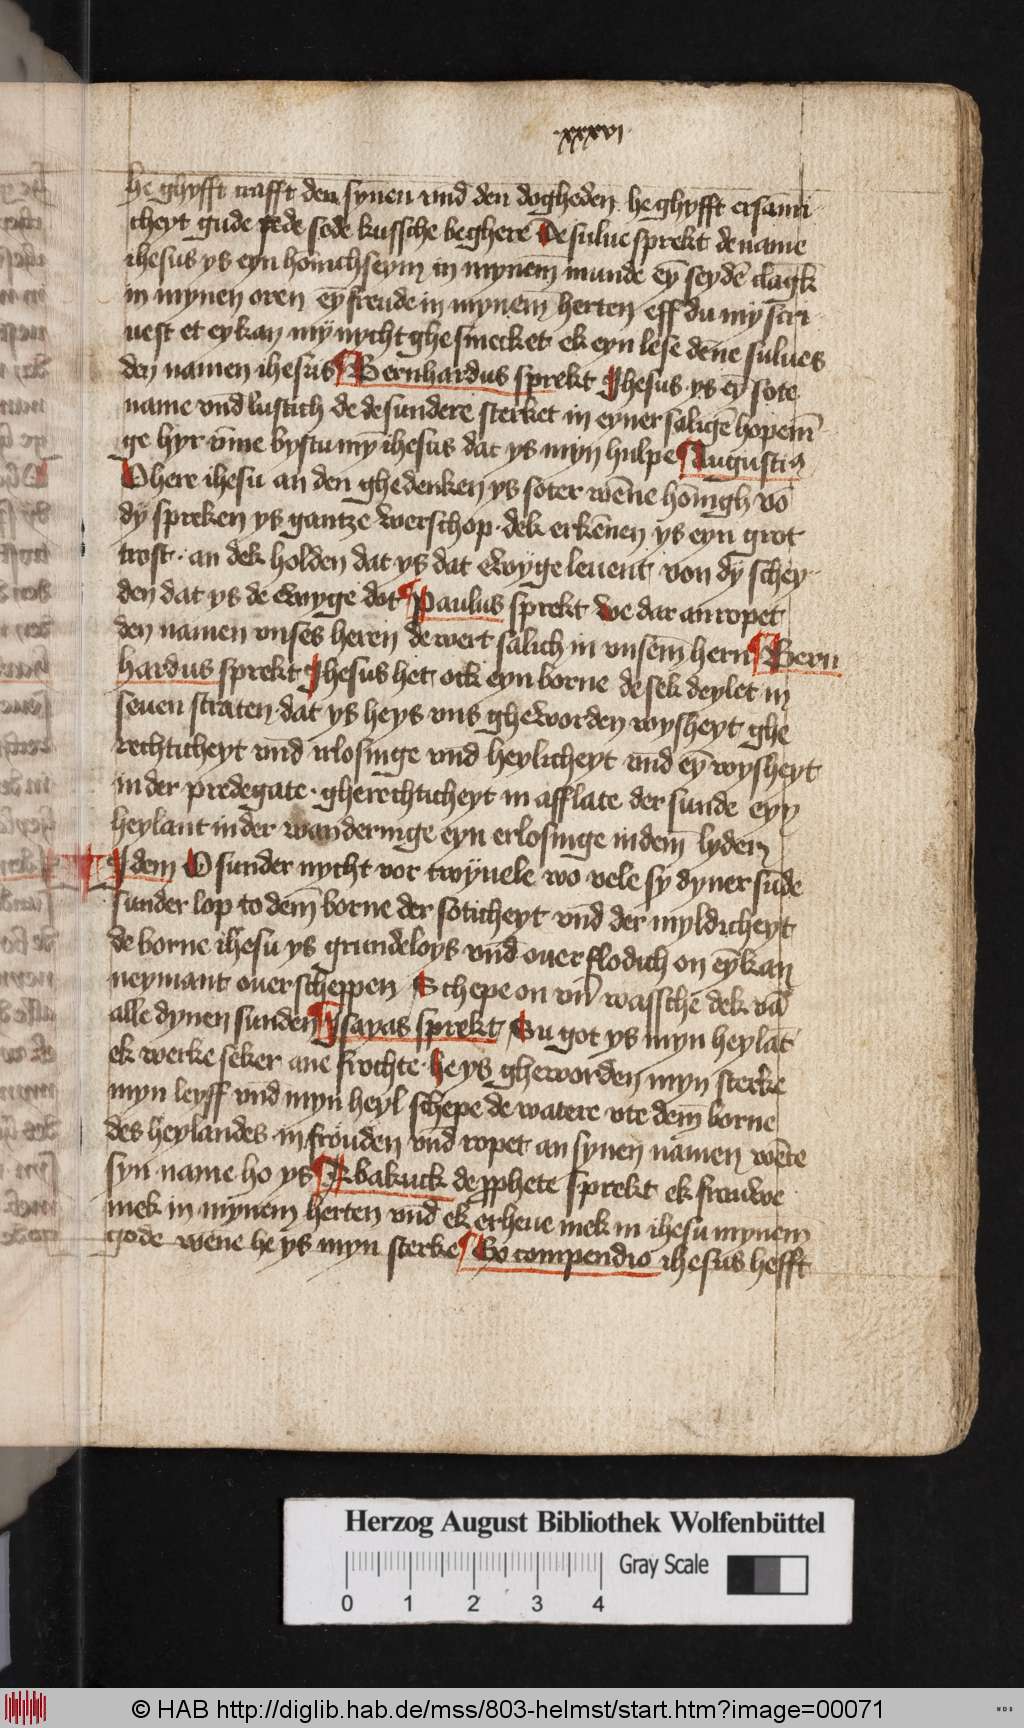 xxxvi
he ghyfft crafft den synen vnd den dogheden he ghyfft ersami
cheyt gude sede kussche beghere De sulue sprekt de name
ihesus ys eyn honnichseym in mynem munde eȳ seydē clagk
in mynen oren eȳ freude in mynem herten eff du my scri
uest et ey kan mȳ nycht ghesmecket ek eyn lese dēne sulues
den namen ihesus Bernhardus sprekt Jhesus ys eȳ sote
name vnd lustich de desundere sterket in eyner saligē hopenī
ge hyr vme bystu mȳ ihesus dat ys myn hulpe Augustiꝯ
O here ihesu an den ghedenken ys soter wēne honigh vō
dy spreken ys gantze werschop dek erkēnen ys eyn grot
trost an dek holden dat ys dat ewyge leuent von dy schey
den dat ys de ewyge dot Paulus sprekt We dar an ropet
den namen vnses heren de wert salich in vnsem hern Bern
hardus sprekt Jhesus het ock eyn borne de sek deylet in
seuen straten dat ys he ys vns gheworden wysheyt ghe
rechticheyt vnd irlosinge vnd heylicheyt vnd eȳ wysheyt
in der predegate gherechticheyt in afflate der sunde eyn
heylant in der wanderinge eyn erlosinge in dem lyden
Jdem O sunder nycht vor twyuele wo vele sy dyner sūde
sunder lop to dem borne der soticheyt vnd der myldicheyt
de borne ihesu ys grundeloys vnd ouerflodich on eȳ kan
neymant ouerscheppen Schepe on vn̄ wassche dek vā
alle dynen sunden Ysayas sprekt Su got ys myn heylāt
ek werke seker ane frochte he ys gheworden myn sterke
myn leyff vnd myn heyl schepe de watere vte dem borne
des heylandes in frouden vnd ropet an synen namen wēte
syn name ho ys Abakuck de ꝓphete sprekt ek frouwe
mek in mynem herten vnd ek erheue mek in ihesu mynem
gode wēne he ys myn sterke Jn compendio ihesus hefft
Herzog August Bibliothek Wolfenbüttel
Gray Scale
0 1 2 3 4
© HAB http://diglib.hab.de/mss/803-helmst/start.htm?image=00071